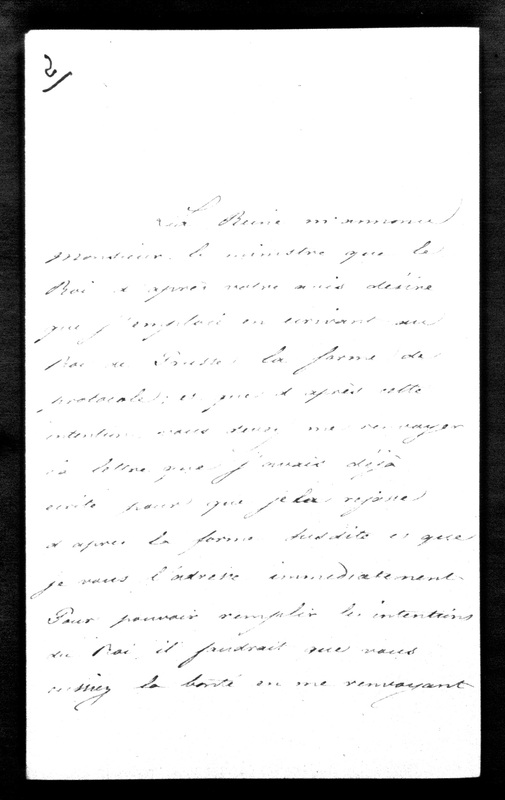 2/
La Reine m'annonce
Monsieur le ministre que le
Roi d'après votre avis désire
que j'emploie en écrivant au
Roi de Prusse la forme de
protocole, et que d'après cette
intention vous devez me renvoyer
la lettre que j'avais déjà
écrite pour que je la refasse
d'après la forme susdite et que
je vous l'adresse immédiatement.
Pour pouvoir remplir les intentions
du Roi, il faudrait que vous
eussiez la bonté en me renvoyant